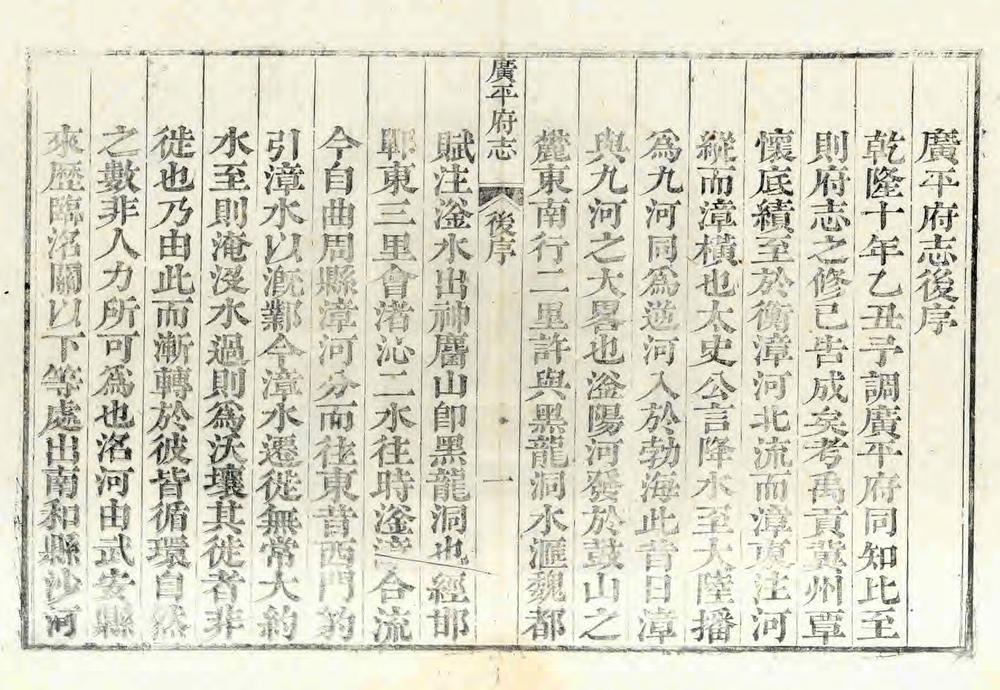 廣平府志後序
乾隆十年乙丑予調廣平府同知比至
則府志之修已告成矣考禹貢冀州覃
懷底績至於衡漳河北流而漳東注河
縱而漳橫也太史公言降水至大陸播
為九河同為逆河入於勃海此昔日漳
與九河之大畧也滏陽河發於鼓山之
麓東南行二里許與黑龍洞水滙魏都
廣平府志
後序
一
賦注滏水出神麕山卽黑龍洞也經邯
鄲東三里會渚沁二水往時滏漳合流
今自曲周縣漳河分而往東昔西門豹
引漳水以漑鄴今漳水遷徙無常大約
水至則淹浸水過則為沃壤其徙者非
徙也乃由此而漸轉於彼皆循環自然
之數非人力所可為也洺河由武安縣
來歷臨洺關以下等處出南和縣沙河